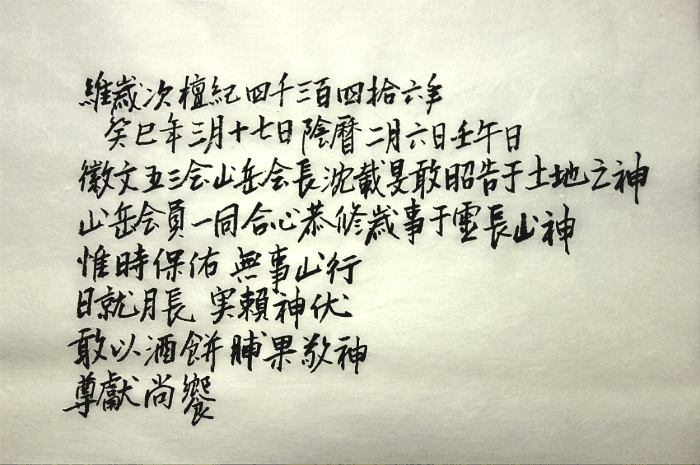 維歲次檀紀四千三百四拾六年
癸巳年三月十七日陰曆二月六日壬午日
徽文五三会山岳会長沈載旻敢昭告于土地之神
山岳会員一同合心恭修歲事于靈長山神
惟時保佑 無事山行
日就月長 実賴神伏
敢以酒餠脯果敬神
尊獻尚饗